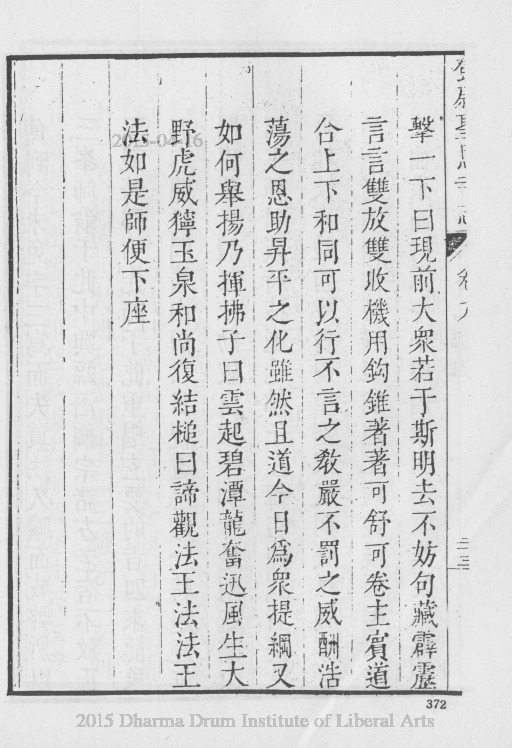 擊一下曰現前大衆若于斯明去不妨句藏霹靂
言言雙放雙收機用鈎錐著著可舒可卷主賓道
合上下和同可以行不言之教嚴不罰之威酬浩
蕩之恩助昇平之化雖然且道今日爲衆提綱又
如何舉揚乃揮拂子曰雲起碧潭龍奮迅風生大
野虎威獰玉泉和尚復結槌曰諦觀法王法法王
法如是師便下座
卷九
372
2015 Dharma Drum Institute of Liberal Arts